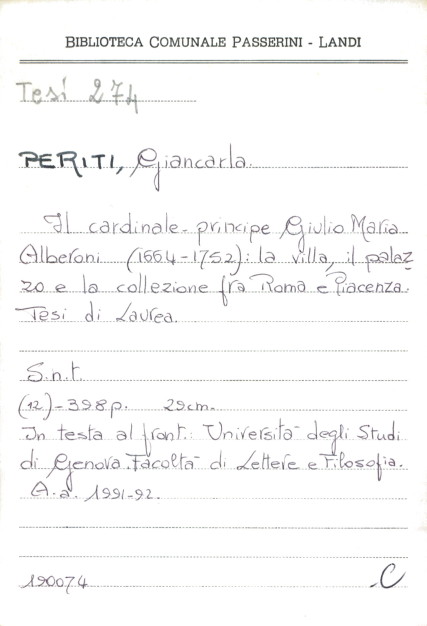 BIBLIOTECA COMUNALE PASSERINI - LANDI
Tesi 274
PERITI, Giancarla.
Il cardinale-principe Giulio Maria
Alberoni (1664-1752): la villa, il palaz-
zo e la collezione fra Roma e Piacenza.
Tesi di Laurea.
S.n.t.
(12)-398p. 29cm.
In testa al front.: Università degli Studi
di Genova. Facoltà di Lettere e Filosofia.
A.a. 1991-92.
190074 C